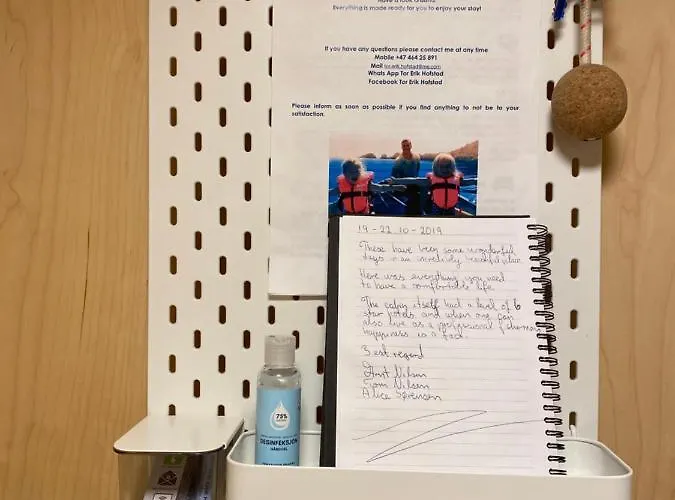 Have a look around.
Everything is made ready for you to enjoy your stay!
If you have any questions please contact me at any time
Mobile +47 464 25 891
Mail
Whats App Tor Erik Hofstad
Facebook Tor Erik Hofstad
Please inform as soon as possible if you find anything to not be to your
satisfaction.
19-22.10-2019
These have been some wonderful
days in an incredibly beautiful place
Here was everything you need
to have a comfortable life
The cabin itself had a level of 6
star hotels, and when one can
also live as a professional fisherman
happiness is a fact.
Best regard
Nilsen
Nilsen
Alice Sørensen
75%
DESINFEKSJON